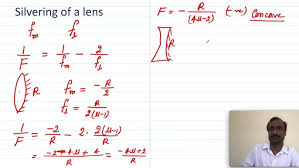 Silvering of a lens
f_m f_l
1/F = 1/f_m - 2/f_l
R f_m = -R/2
f_l = R/2(μ-1)
1/F = -2/R - 2·2(μ-1)/R
= -2-4μ+4/R = -4μ+2/R
F = - R/(4μ-2) (-ve) Concave
R